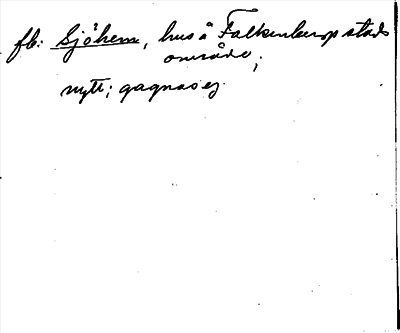 fb: Sjöhem, hus å Falkenbergs stads
område;
nytt; gagnas ej.